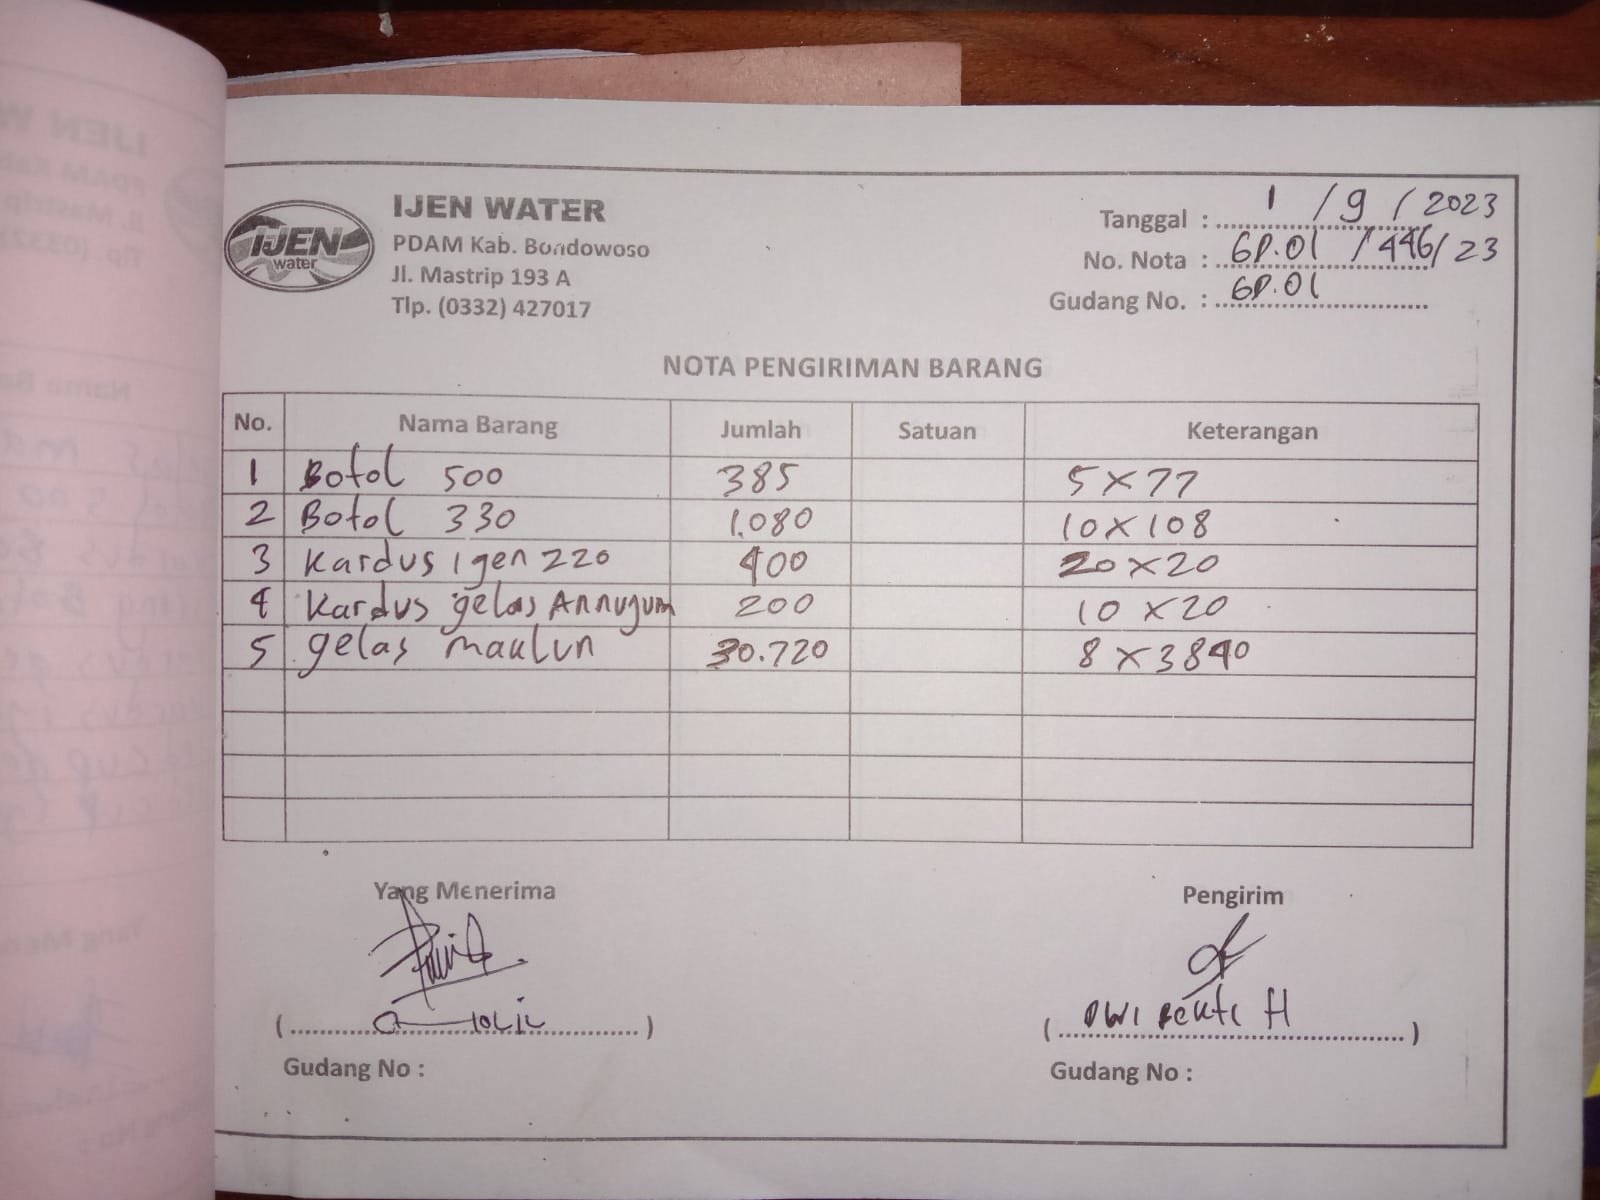 IJEN WATER
IJEN
water
PDAM Kab. Bondowoso
Jl. Mastrip 193 A
Tlp. (0332) 427017
Tanggal : 1 / 9 / 2023
No. Nota : GD.01 / 446/23
Gudang No. : GD.01
NOTA PENGIRIMAN BARANG
No. Nama Barang Jumlah Satuan Keterangan
1 Botol 500 385 5 x 77
2 Botol 330 1.080 10 x 108
3 Kardus Igen 220 400 20 x 20
4 Kardus gelas Annugum 200 10 x 20
5 gelas maklun 30.720 8 x 3840
Yang Menerima Pengirim
(....................) (DWI BEKTI H)
Gudang No : Gudang No :